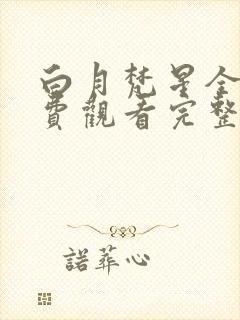 白月梵星全
費觀看完整
諾葬心